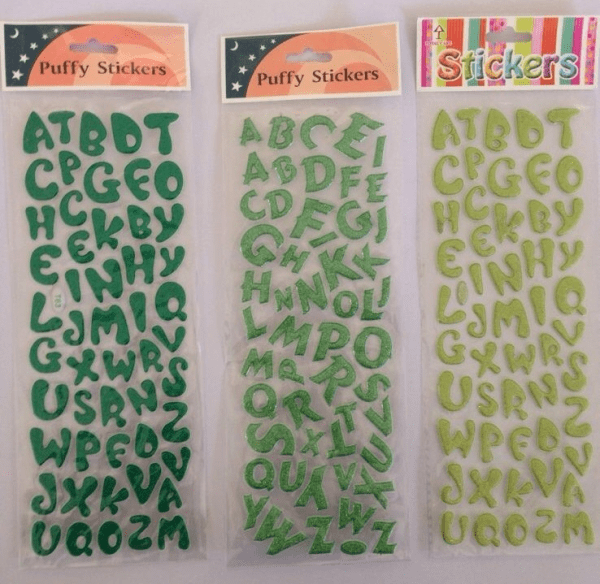 Puffy Stickers
A T B D T
C P G E O
H C K B Y
E E I N H Y
L J M I Q
G X W R V
U S R N S
W P E D Z
J X K V V A
U Q O Z M
Puffy Stickers
A B C E I
A B D F E
C D F I G J
G H K K
H N N O L !
L M P O
M R R S
Q R T V
S X I U
Q U Y V X
Y W Z ! W Z
Stickers
A T B D T
C P G E O
H C K B Y
E E I N H Y
L J M I Q
G X W R V
U S R N S
W P E D Z
J X K V V A
U Q O Z M